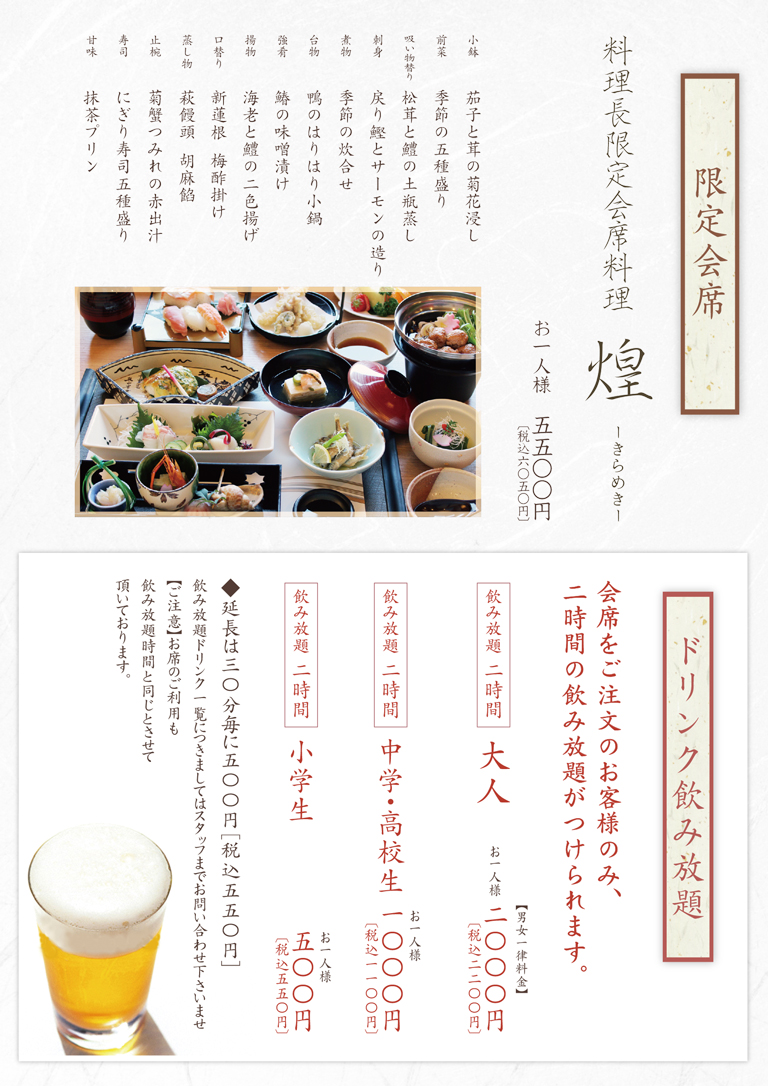 限定会席
料理長限定会席料理 煌 ーきらめきー
お一人様 五五〇〇円
［税込六〇五〇円］
小鉢 茄子と茸の菊花浸し
前菜 季節の五種盛り
吸い物替り 松茸と鱧の土瓶蒸し
刺身 戻り鰹とサーモンの造り
煮物 季節の炊合せ
台物 鴨のはりはり小鍋
強肴 鰆の味噌漬け
揚物 海老と鱧の二色揚げ
口替り 新蓮根 梅酢掛け
蒸し物 萩饅頭 胡麻餡
止椀 菊蟹つみれの赤出汁
寿司 にぎり寿司五種盛り
甘味 抹茶プリン
ドリンク飲み放題
会席をご注文のお客様のみ、
二時間の飲み放題がつけられます。
飲み放題 二時間 大人 お一人様 二〇〇〇円
【男女一律料金】
［税込二二〇〇円］
飲み放題 二時間 中学・高校生 お一人様 一〇〇〇円
［税込一一〇〇円］
飲み放題 二時間 小学生 お一人様 五〇〇円
［税込五五〇円］
◆延長は三〇分毎に五〇〇円［税込五五〇円］
飲み放題ドリンク一覧につきましてはスタッフまでお問い合わせ下さいませ
【ご注意】お席のご利用も
飲み放題時間と同じとさせて
頂いております。